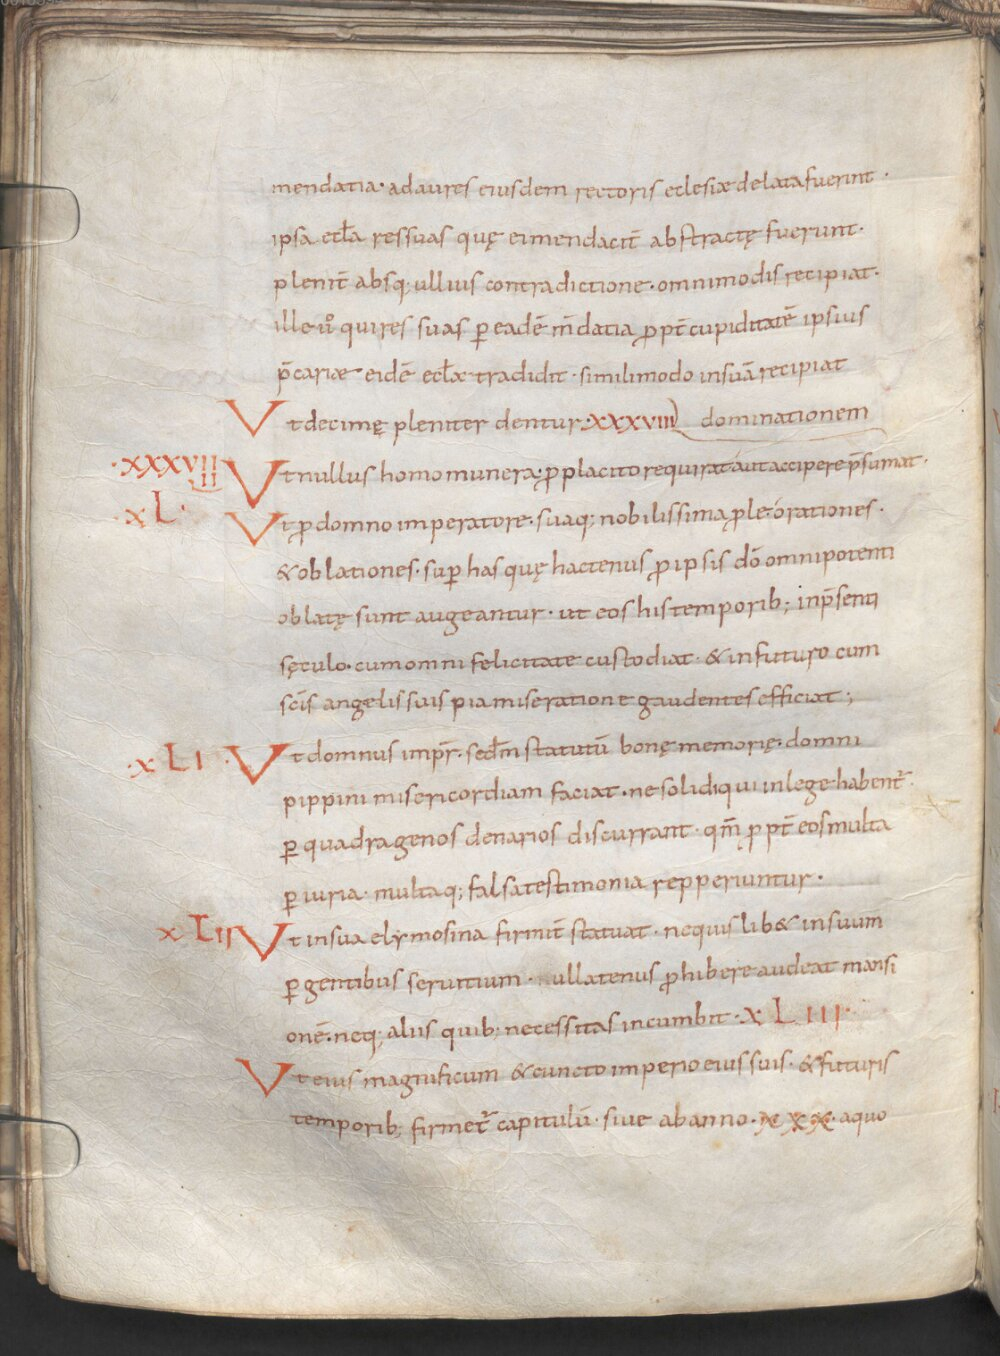 mendatia· ad aures eiusdem rectoris eclesiæ delata fuerint·
ipsa eccła res suas quę ei mendacit̄ abstractę fuerunt·
plenit̄ absq; ullius contradictione· omnimodis recipiat·
ille u͛o qui res suas p̱ eadē m̄datia ꝓpt̄ cupiditatē ipsius
p̄cariæ eidē eccłæ tradidit· simili modo in suā recipiat
Ut decimę pleniter dentur· XXXVIII dominationem
·XXXVIIII Ut nullus homo munera ꝓ placito requirat aut accipere p̄sumat·
·XL· Ut ꝓ domno imperatore· suaq; nobilissima ꝓle· orationes·
& oblationes· sup̱ has quę hactenus ꝓ ipsis dō omnipotenti
oblatę sunt augeantur· ut eos his temporib; in p̄senti
sęculo· cum omni felicitate custodiat· & in futuro cum
sc̄is angelis suis pia miseratione gaudentes efficiat;
·XLI· Ut domnus imp̄r· scdm̄ statutū bonę memorię· domni
pippini misericordiam faciat· ne solidi qui in lege habent᷒·
p̱ quadragenos denarios discurrant· qm̄ ꝓpt̄ eos multa
p̱iuria· multaq; falsa testimonia repperiuntur·
XLII Ut in sua elymosina firmit̄ statuat· ne quis lib& in suum
p̱gentibus seruitium· nullatenus ꝓhibere audeat mansi
onē· neq; aliis quib; necessitas incumbit· XLIII·
Ut eius magnificum & cuncto imperio eius suis· & futuris
temporib; firmet᷒ capitulū· siue ab anno· XXX· a quo